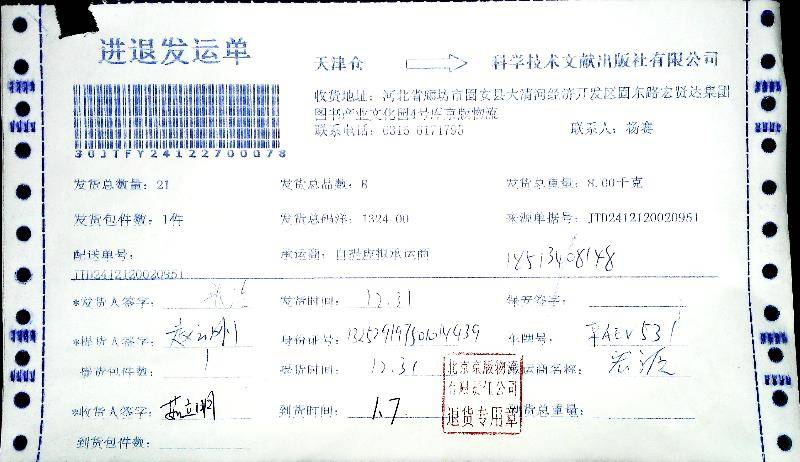 进退发运单
天津仓 科学技术文献出版社有限公司
收货地址：河北省廊坊市固安县大清河经济开发区固东路宏贤达集团
图书产业文化园4号库京版物流
联系电话：0316 6171795 联系人：杨赛
30JTFY24122700078
发货总数量：21 发货总品数：6 发货总重量：8.00千克
发货包件数：1件 发货总码洋：1324.00 来源单据号：JTD2412120020951
配送单号： 承运商：自提虚拟承运商 18513408148
JTD2412120020951
*发货人签字： 发货时间： 12.31 保安签字：
*提货人签字： 身份证号： 车牌号：
提货包件数： 1 提货时间： 12.31 运商名称：宏源
北京京版物流
有限责任公司
退货专用章
*收货人签字： 到货时间： 1.7 到货总重量：
到货包件数：